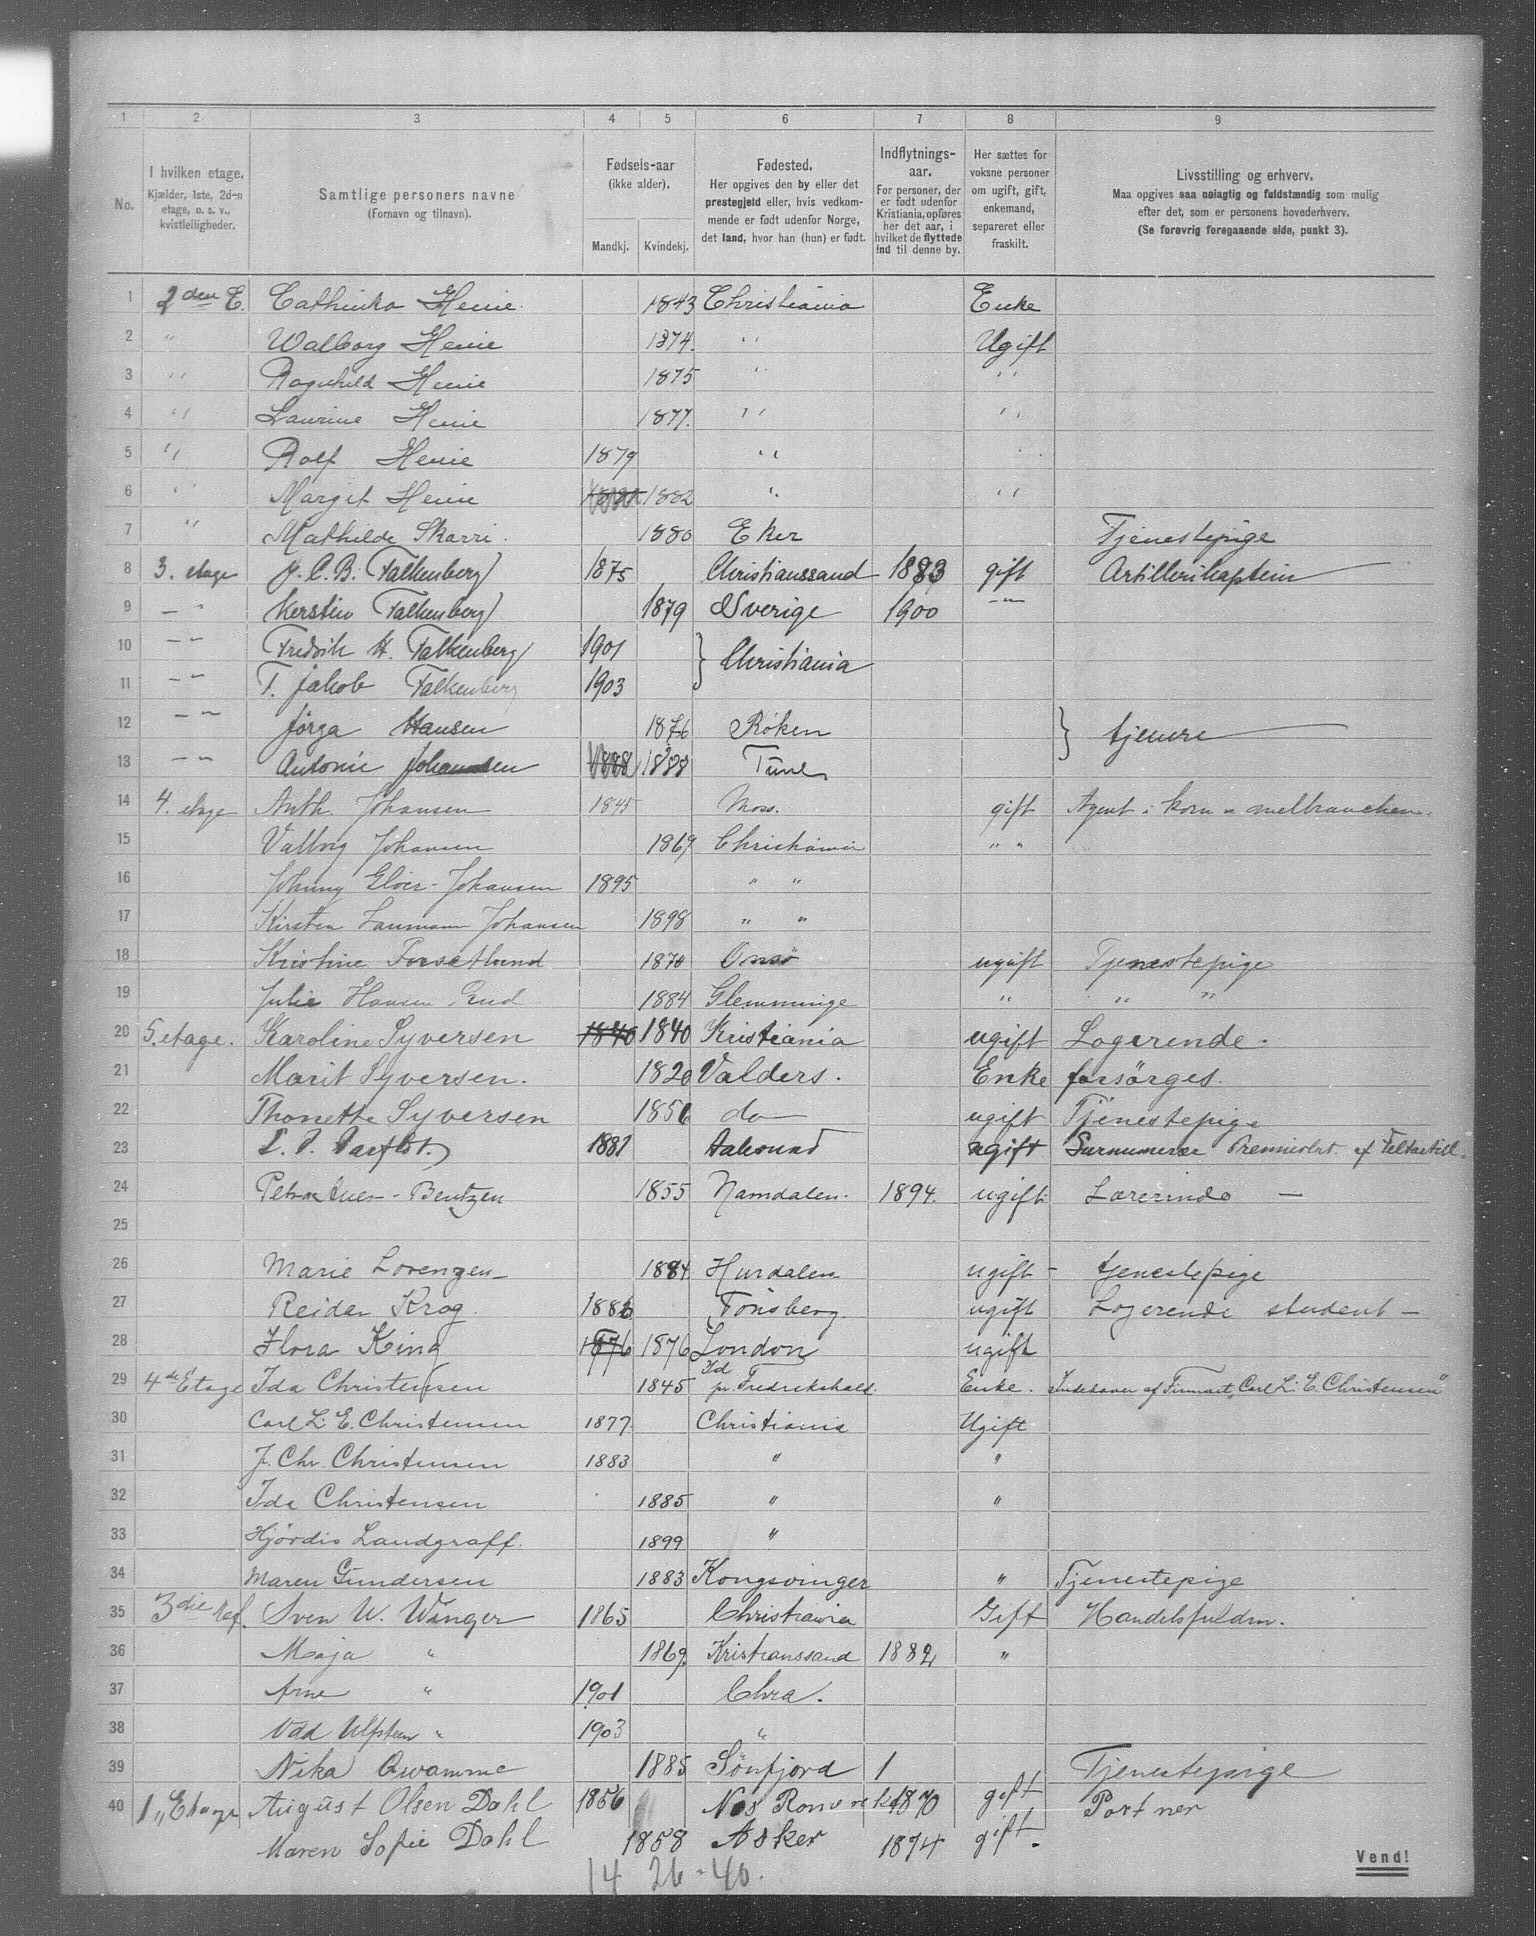 1 2 3 4 5 6 7 8 9
No.
I hvilken etage.
Kjælder, 1ste, 2d-n
etage, o. s. v.,
kvistleiligheder.
Samtlige personers navne
(Fornavn og tilnavn).
Fødsels-aar
(ikke alder).
Mandkj. Kvindekj.
Fødested.
Her opgives den by eller det
prestegjeld eller, hvis vedkom-
mende er født udenfor Norge,
det land, hvor han (hun) er født.
Indflytnings-
aar.
For personer, der
er født udenfor
Kristiania, opføres
her det aar, i
hvilket de flyttede
ind til denne by.
Her sættes for
voksne personer
om ugift, gift,
enkemand,
separeret eller
fraskilt.
Livsstilling og erhverv.
Maa opgives saa nøiagtig og fuldstændig som mulig
efter det, som er personens hovederhverv.
(Se forøvrig foregaaende side, punkt 3).
1 2den E. Cathinka Henie 1843 Christiania Enke
2 " Walborg Henie 1874. " Ugift
3 " Ragnhild Henie 1875 " "
4 " Laurine Henie 1877. " "
5 " Rolf Henie 1879 "
6 " Margit Henie 1882 " "
7 " Mathilde Skarri. 1880 Eker Tjenestepige
8 3. etage J. C. B. Falkenberg 1875 Christianssand 1883 gift Artillerikaptein
9 — " Kerstin Falkenberg 1879 Sverige 1900 — "
10 — " Fredrik H. Falkenberg 1901 } Christiania
11 — " T. Jakob Falkenberg 1903
12 — " Jørga Hansen 1876 Røken } tjenere
13 — " Antonie Johansen 1888 1888 Tune
14 4. etage Anth. Johansen 1845 Moss. gift Agent i korn & melbranchen.
15 Valborg Johansen 1869 Christiania " "
16 Johnny Johansen 1895 " "
17 Kirsten Laumann Johansen 1898 " "
18 Kristine 1870 Onsø ugift Tjenestepige
19 Julie Hansen 1884 Glemminge " " "
20 5. etage. Karoline Syversen 1840 1840 Kristiania ugift Logerende.
21 Marit Syversen. 1820 Valders. Enke forsørges.
22 Thonette Syversen 1856 do — ugift Tjenestepige
23 1881 Aalesund ugift Surnumerær Premierløit. af Feltartill.
24 Petra Bentzen 1855 Namdalen. 1894. ugift Lærerinde —
25
26 Marie Lorenzen 1884 Hurdalen ugift — tjenestepige
27 Reidar Krog. 1886 Tønsberg. ugift Logerende student —
28 Flora King 1876 1876 London ugift
29 4de Etage Ida Christensen 1845 Id pr. Fredrikshald. Enke. Indehaver af Firmaet "Carl L. E. Christensen"
30 Carl L. E. Christensen 1877 Christiania Ugift
31 J. Chr. Christensen 1883 " "
32 Ida Christensen 1885 " "
33 Hjørdis Landgraff. 1899 "
34 Maren Gundersen 1883 Kongsvinger " Tjenestepige
35 3die Sven W. Wanger 1865 Christiania Gift Handelsfuldm.
36 Maja " 1869. Kristianssand 1882 "
37 Arne " 1901 Chra.
38 Odd " 1903 "
39 Nika Qvamme 1885 Sønfjord 1 Tjenestepige
40 1,, Etage August Olsen Dahl 1856 1870 gift Portner
Maren Sofie Dahl 1858 Asker 1874 gift.
14 26 - 40.
Vend!